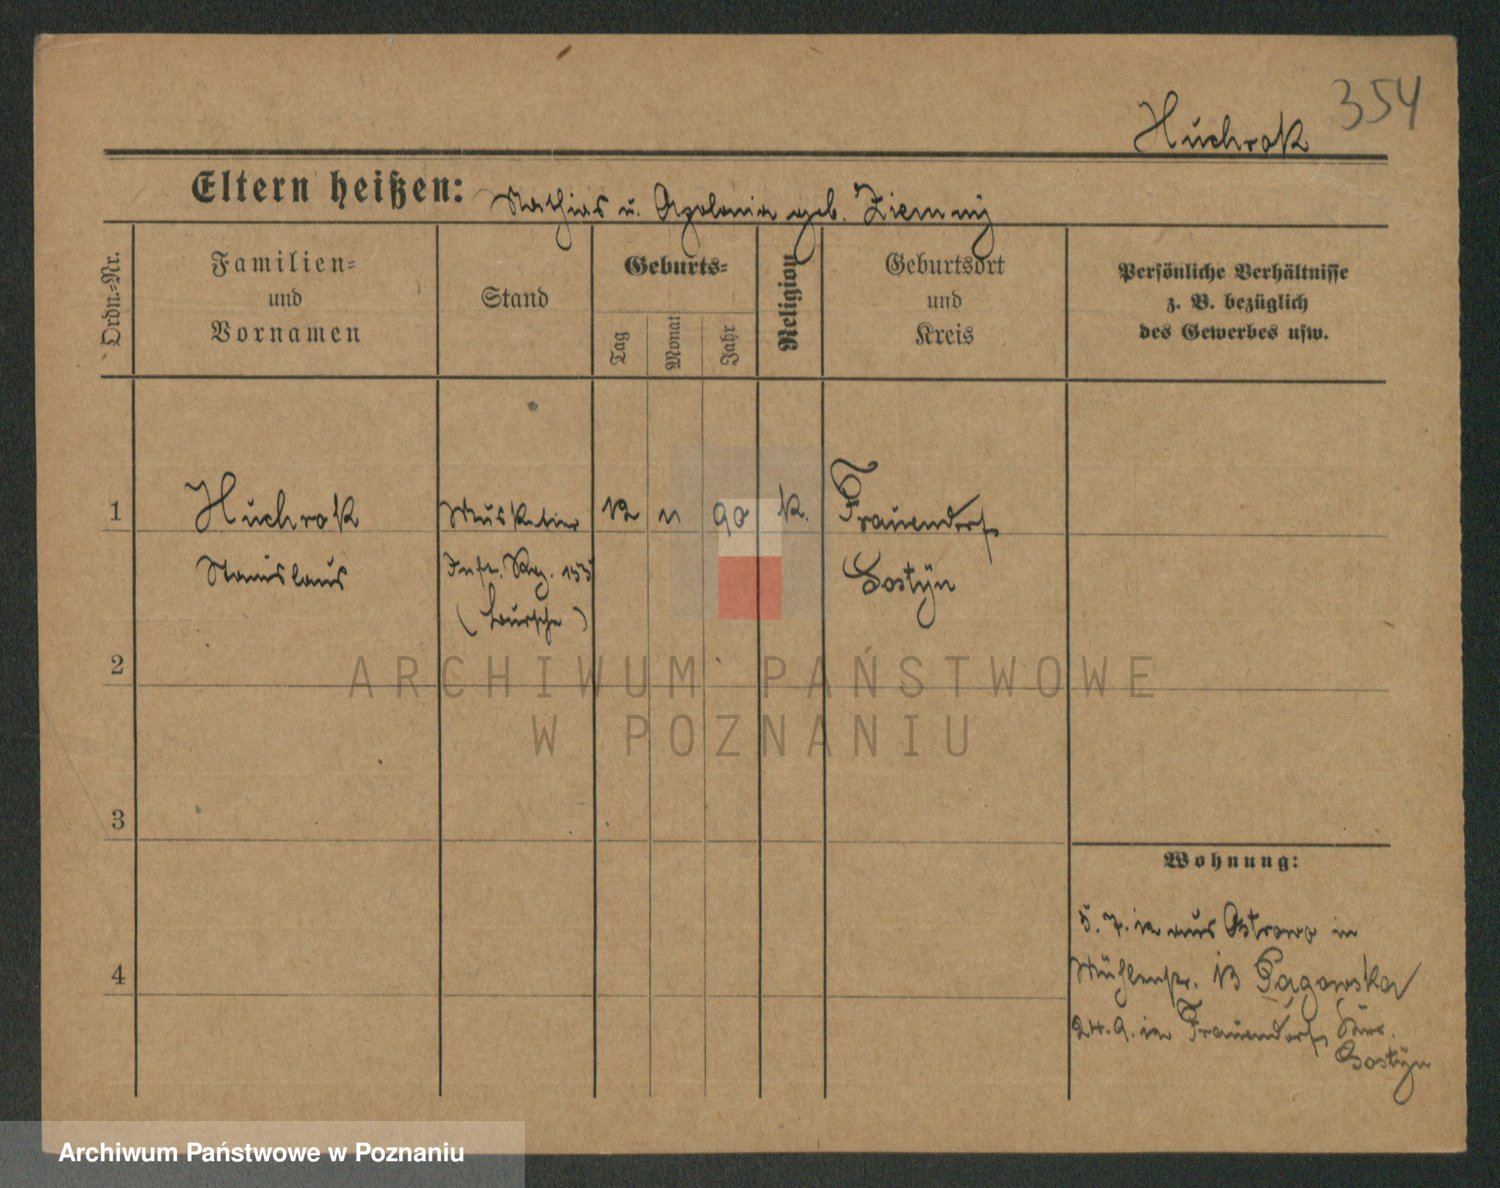 354
Huchrak
Eltern heißen: Mathias u. Apolonia geb.
Ordn.-Nr.
Familien-
und
Vornamen
Stand
Geburts-
Tag
Monat
Jahr
Religion
Geburtsort
und
Kreis
Persönliche Verhältnisse
z. B. bezüglich
des Gewerbes usw.
1
Huchrak
Musketier
12
11
90
k.
Frauendorf
Stanislaus
Inftr. Reg. 155
Gostÿn
(Bursche)
2
3
4
Wohnung:
5. 7. 12 aus Ostrowo in
Mühlenstr. 13
24. 9. 12 Frauendorf
Gostÿn
ARCHIWUM PAŃSTWOWE
W POZNANIU
Archiwum Państwowe w Poznaniu